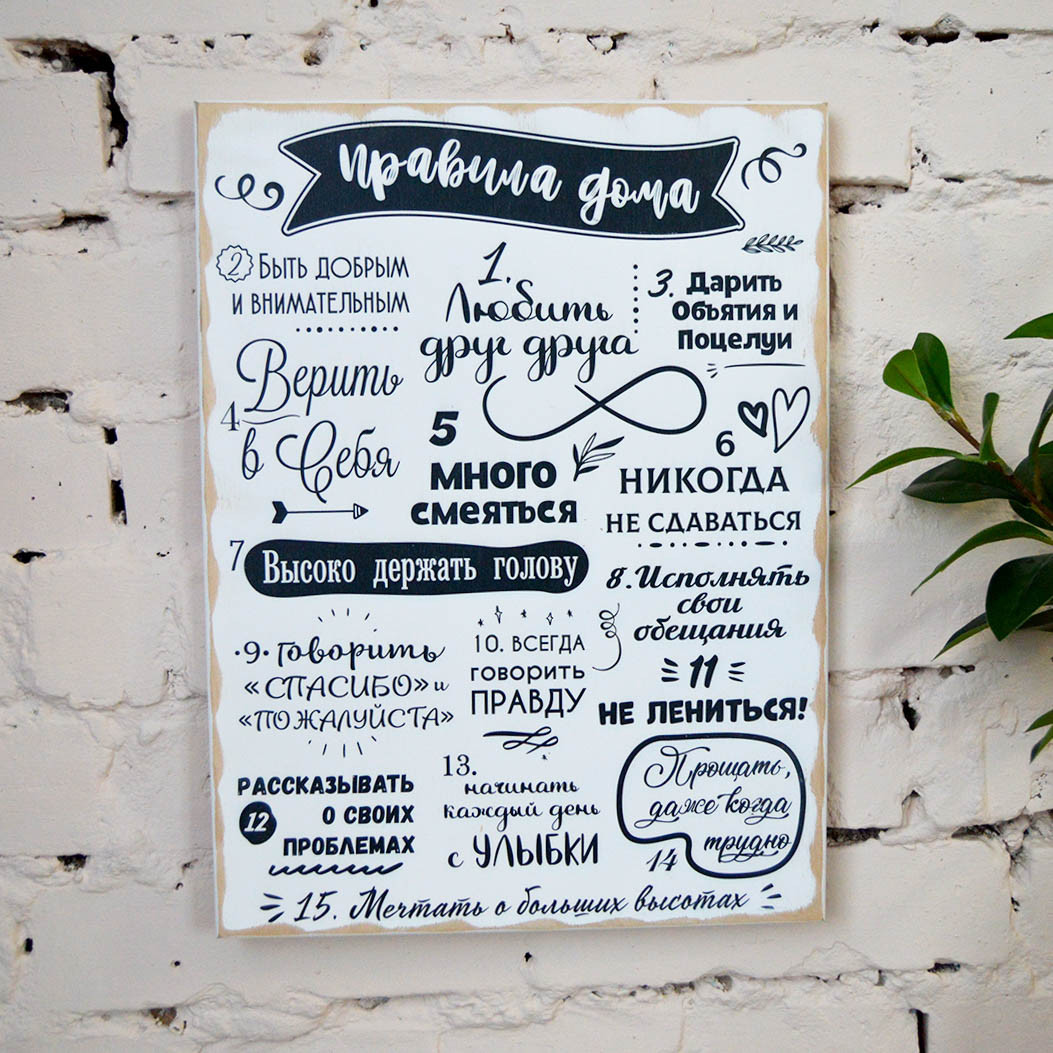 правила дома
1.
Любить
друг друга
2 Быть добрым
и внимательным
3. Дарить
Объятия и
Поцелуи
4 Верить
в Себя
5
много
смеяться
6
НИКОГДА
НЕ СДАВАТЬСЯ
7 Высоко держать голову
8. Исполнять
свои
обещания
·9· Говорить
«СПАСИБО» и
«ПОЖАЛУЙСТА»
10. ВСЕГДА
говорить
ПРАВДУ
11
НЕ ЛЕНИТЬСЯ!
РАССКАЗЫВАТЬ
12 О СВОИХ
ПРОБЛЕМАХ
13.
начинать
каждый день
с УЛЫБКИ
Прощать,
даже когда
трудно
14
15. Мечтать о больших высотах